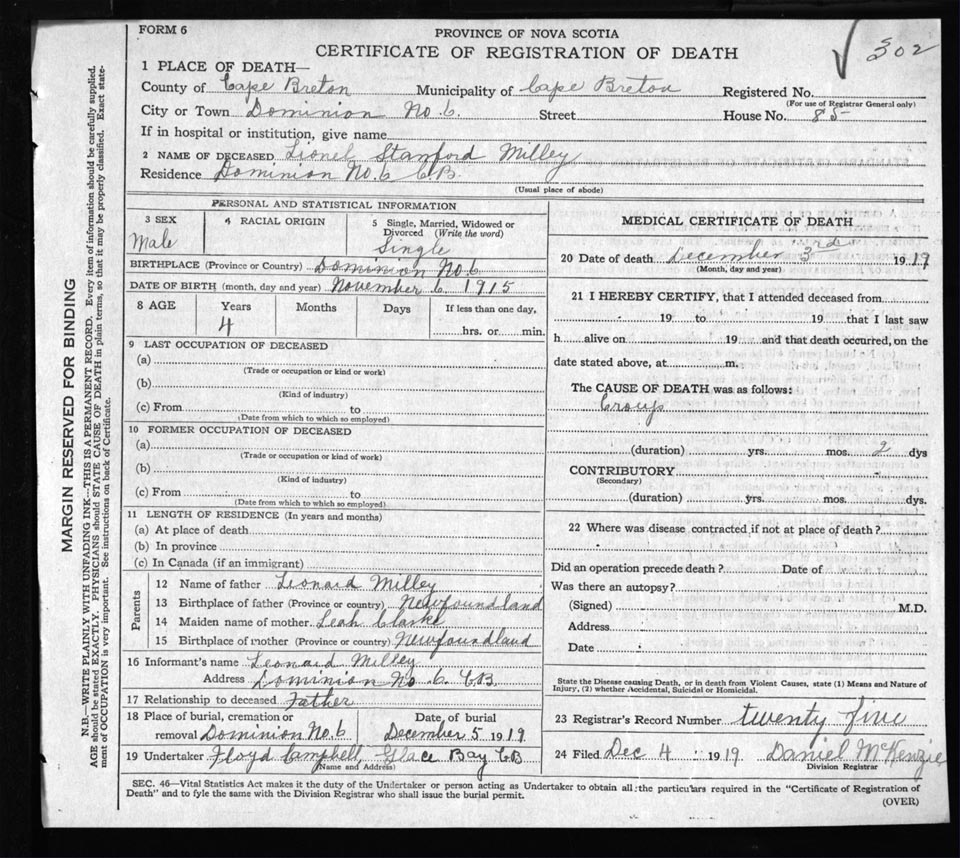 FORM 6
PROVINCE OF NOVA SCOTIA
CERTIFICATE OF REGISTRATION OF DEATH
302
1 PLACE OF DEATH—
County of Cape Breton Municipality of Cape Breton Registered No.
(For use of Registrar General only)
City or Town Dominion No. 6. Street House No. 85
If in hospital or institution, give name
2 NAME OF DECEASED, Lionel Stanford Milley
Residence Dominion No. 6 C.B.
(Usual place of abode)
PERSONAL AND STATISTICAL INFORMATION
3 SEX
Male
4 RACIAL ORIGIN
5 Single, Married, Widowed or
Divorced (Write the word)
Single
BIRTHPLACE (Province or Country) Dominion No. 6
DATE OF BIRTH (month, day and year) November 6 1915
8 AGE Years Months Days If less than one day,
4
hrs. or min.
9 LAST OCCUPATION OF DECEASED
(a)
(Trade or occupation or kind or work)
(b)
(Kind of industry)
(c) From to
(Date from which to which so employed)
10 FORMER OCCUPATION OF DECEASED
(a)
(Trade or occupation or kind of work)
(b)
(Kind of industry)
(c) From to
(Date from which to which so employed)
11 LENGTH OF RESIDENCE (In years and months)
(a) At place of death
(b) In province
(c) In Canada (if an immigrant)
Parents
12 Name of father Leonard Milley
13 Birthplace of father (Province or country) Newfoundland
14 Maiden name of mother Leah Clarke
15 Birthplace of mother (Province or country) Newfoundland
16 Informant's name Leonard Milley
Address Dominion No 6. C.B.
17 Relationship to deceased Father
18 Place of burial, cremation or Date of burial
removal Dominion No. 6 December 5 1919
19 Undertaker Floyd Campbell, Glace Bay CB
(Name and Address)
MEDICAL CERTIFICATE OF DEATH
20 Date of death December 3rd 1919
(Month, day and year)
21 I HEREBY CERTIFY, that I attended deceased from
19 to 19 that I last saw
h alive on 19 and that death occurred, on the
date stated above, at m.
The CAUSE OF DEATH was as follows:
Croup
(duration) yrs. mos. 2 dys
CONTRIBUTORY
(Secondary)
(duration) yrs. mos. dys.
22 Where was disease contracted if not at place of death?
Did an operation precede death? Date of
Was there an autopsy?
(Signed) M.D.
Address
Date
State the Disease causing Death, or in death from Violent Causes, state (1) Means and Nature of
Injury, (2) whether Accidental, Suicidal or Homicidal.
23 Registrar's Record Number twenty five
24 Filed Dec 4 1919 Daniel McKenzie
Division Registrar
SEC. 46—Vital Statistics Act makes it the duty of the Undertaker or person acting as Undertaker to obtain all the particulars required in the "Certificate of Registration of
Death" and to fyle the same with the Division Registrar who shall issue the burial permit.
(OVER)
MARGIN RESERVED FOR BINDING
N.B.—WRITE PLAINLY WITH UNFADING INK—THIS IS A PERMANENT RECORD. Every item of information should be carefully supplied.
AGE should be stated EXACTLY. PHYSICIANS should STATE CAUSE OF DEATH in plain terms, so that it may be properly classified. Exact state-
ment of OCCUPATION is very important. See instructions on back of Certificate.